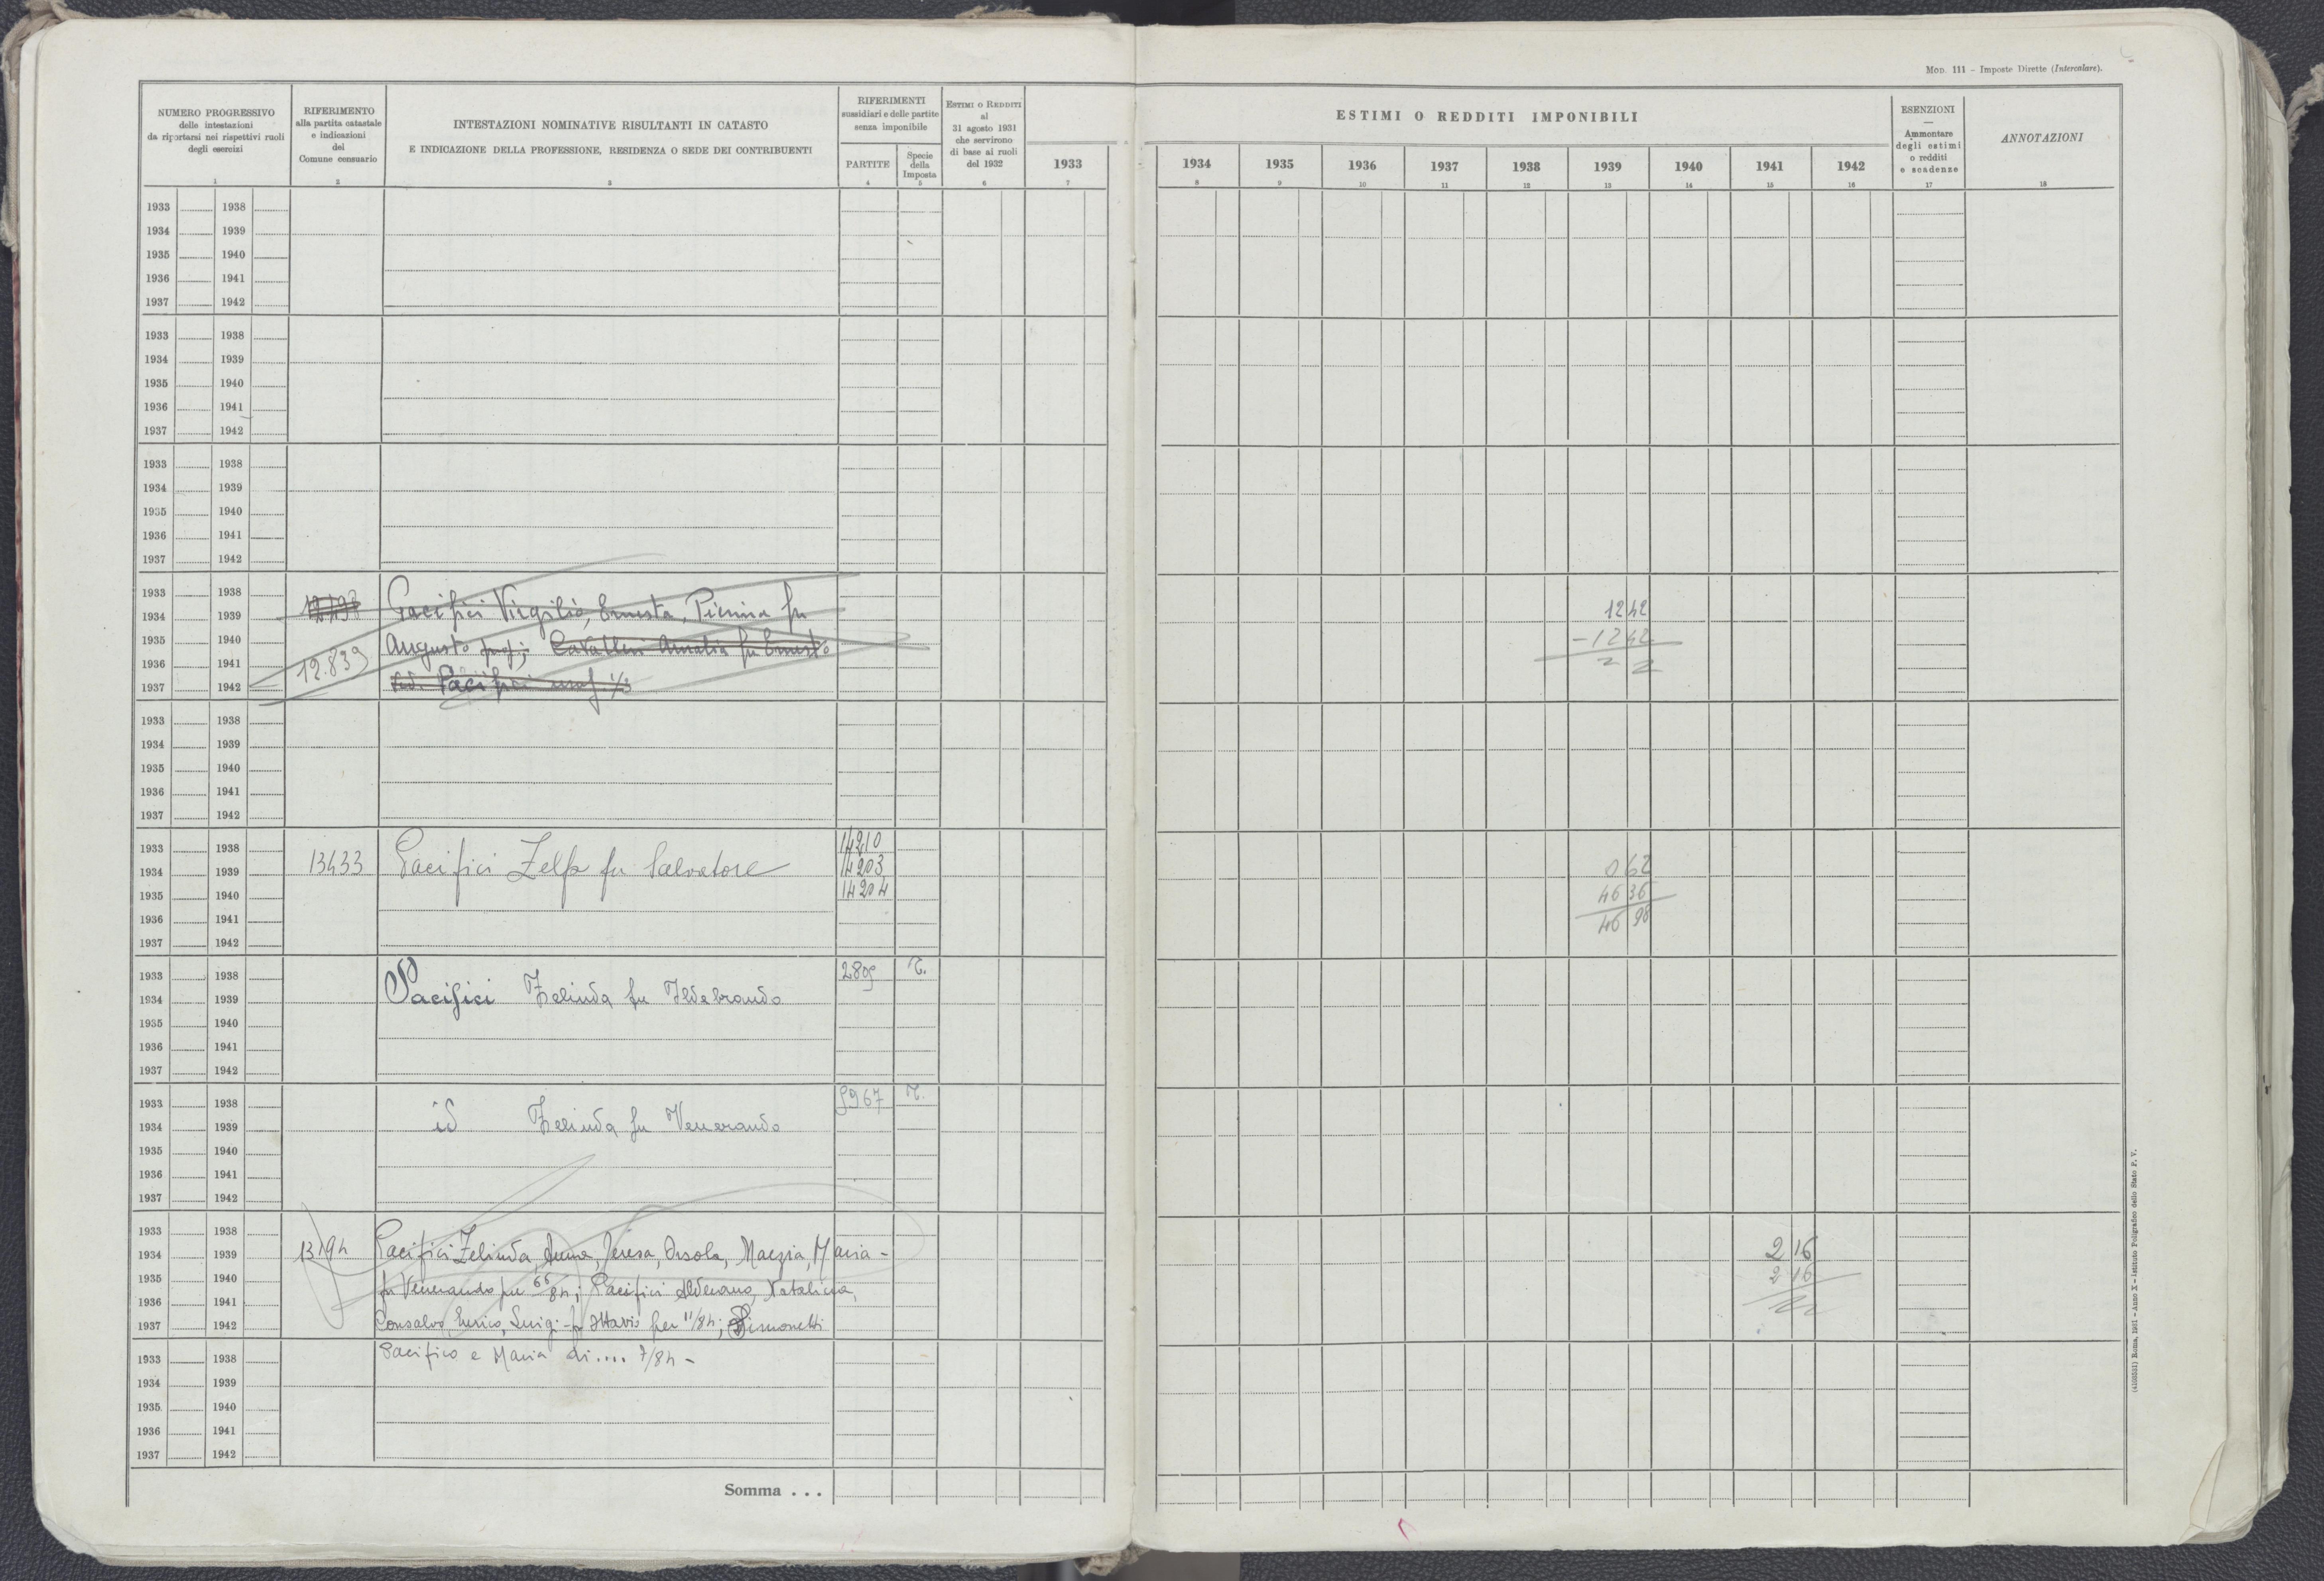 MOD. 111 – Imposte Dirette (Intercalare).
NUMERO PROGRESSIVO
delle intestazioni
da riportarsi nei rispettivi ruoli
degli esercizi
1
RIFERIMENTO
alla partita catastale
e indicazioni
del
Comune censuario
2
INTESTAZIONI NOMINATIVE RISULTANTI IN CATASTO
E INDICAZIONE DELLA PROFESSIONE, RESIDENZA O SEDE DEI CONTRIBUENTI
3
RIFERIMENTI
sussidiari e delle partite
senza imponibile
PARTITE
4
Specie
della
Imposta
5
ESTIMI O REDDITI
al
31 agosto 1931
che servirono
di base ai ruoli
del 1932
6
1933
7
ESTIMI O REDDITI IMPONIBILI
1934 1935 1936 1937 1938 1939 1940 1941 1942
8 9 10 11 12 13 14 15 16
ESENZIONI
—
Ammontare
degli estimi
o redditi
e scadenze
17
ANNOTAZIONI
18
1933 1938
1934 1939
1935 1940
1936 1941
1937 1942
1933 1938
1934 1939
1935 1940
1936 1941
1937 1942
1933 1938
1934 1939
1935 1940
1936 1941
1937 1942
1933 1938
1934 1939 Pacifici Virgilio, Ernesta, Pierina fu 12 42
1935 1940 Augusto prop; Cavallini Amalia fu Ernesto – 12 42
1936 1941 12.839
1937 1942 ved. Pacifici usuf. 1/3
1933 1938
1934 1939
1935 1940
1936 1941
1937 1942
1933 1938 14210
1934 1939 13433 Pacifici Zelfa fu Salvatore 14203 0 62
1935 1940 14204 46 36
1936 1941 46 98
1937 1942
1933 1938 2809 T.
1934 1939 Pacifici Zelinda fu Ildebrando
1935 1940
1936 1941
1937 1942
1933 1938 5967 T.
1934 1939 id Zelinda fu Venerando
1935 1940
1936 1941
1937 1942
1933 1938
1934 1939 13194 Pacifici Zelinda, Anna, Teresa, Orsola, Marzia, Maria - 2 16
1935 1940 fu Venerando per 66/84; Pacifici Alderano, Natalicia, 2 16
1936 1941
1937 1942 Consalvo, Enrico, Luigi fu Ottavio per 11/84; Simonetti
1933 1938 Pacifico e Maria di .... 7/84 -
1934 1939
1935 1940
1936 1941
1937 1942
Somma . . .
(4100331) Roma, 1931 – Anno X – Istituto Poligrafico dello Stato P. V.